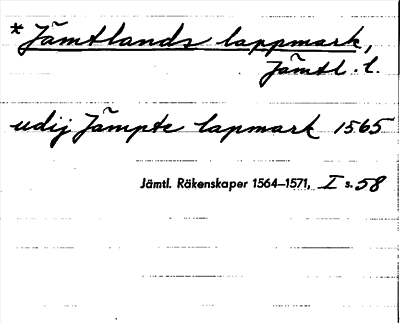 * Jämtlands lappmark,
Jämtl. l.
udij Jämpte lapmark 1565
Jämtl. Räkenskaper 1564–1571, I s. 58